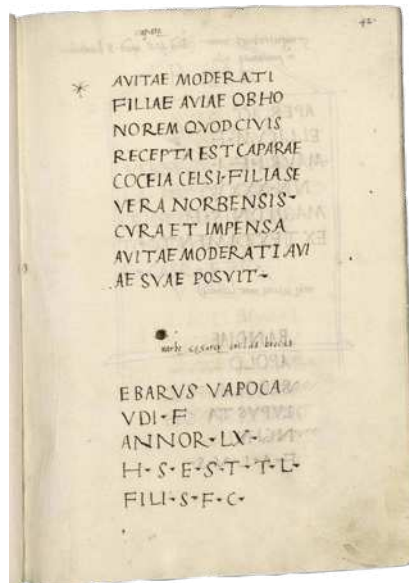 capara
42
AVITAE MODERATI
FILIAE AVIAE OBHO
NOREM QVOD CIVIS
RECEPTA EST CAPARAE
COCEIA CELSI·FILIA SE
VERA NORBENSIS·
CVRA ET IMPENSA
AVITAE MODERATI AVI
AE SVAE POSVIT·
EBARVS VAPOCA
VDI·F
ANNOR·LX·
H·S·E·S·T·T·L·
FILI·S·F·C·